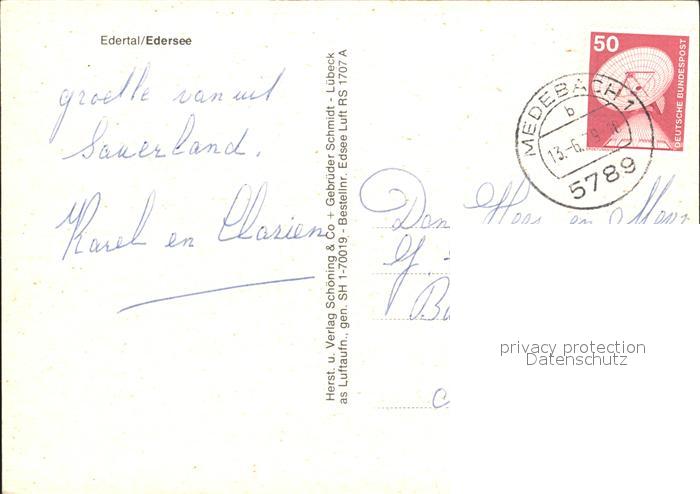 Edertal/Edersee
groette van uit
Sauerland.
Karel en Clasien
Herst. u. Verlag Schöning & Co + Gebrüder Schmidt - Lübeck
as Luftaufn., gen. SH 1-70019, - Bestellnr. Edsee Luft RS 1707 A
50
DEUTSCHE BUNDESPOST
MEDEBACH 1
b
13.-6.79
5789
en
G.
privacy protection
Datenschutz